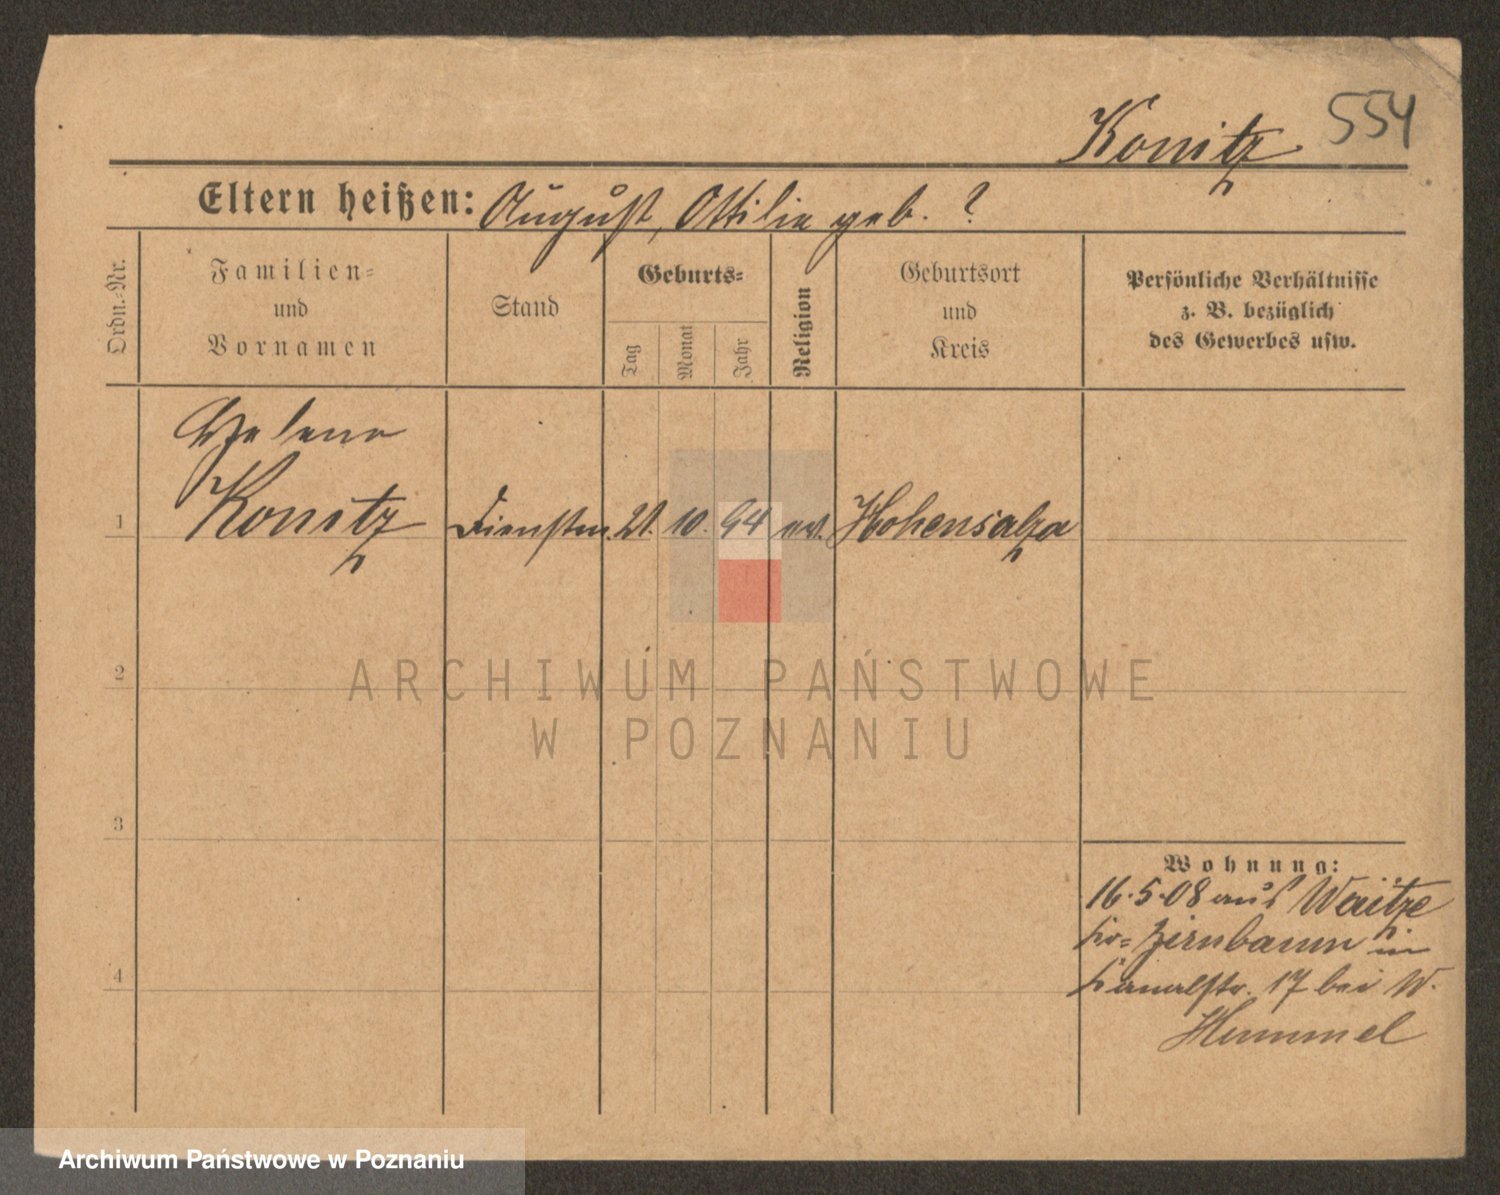 Konitz 554
Eltern heißen: August, Ottilie geb. ?
Ordn.-Nr.
Familien-
und
Vornamen
Stand
Geburts-
Tag
Monat
Jahr
Religion
Geburtsort
und
Kreis
Persönliche Verhältnisse
z. B. bezüglich
des Gewerbes usw.
Helene
1 Konitz Dienstm. 21. 10. 94 ev. Hohensalza
2
3
4
Wohnung:
16.5.08 aus Waitze
Kr= Birnbaum in
Kanalstr. 17 bei W.
Hummel
ARCHIWUM PAŃSTWOWE
W POZNANIU
Archiwum Państwowe w Poznaniu